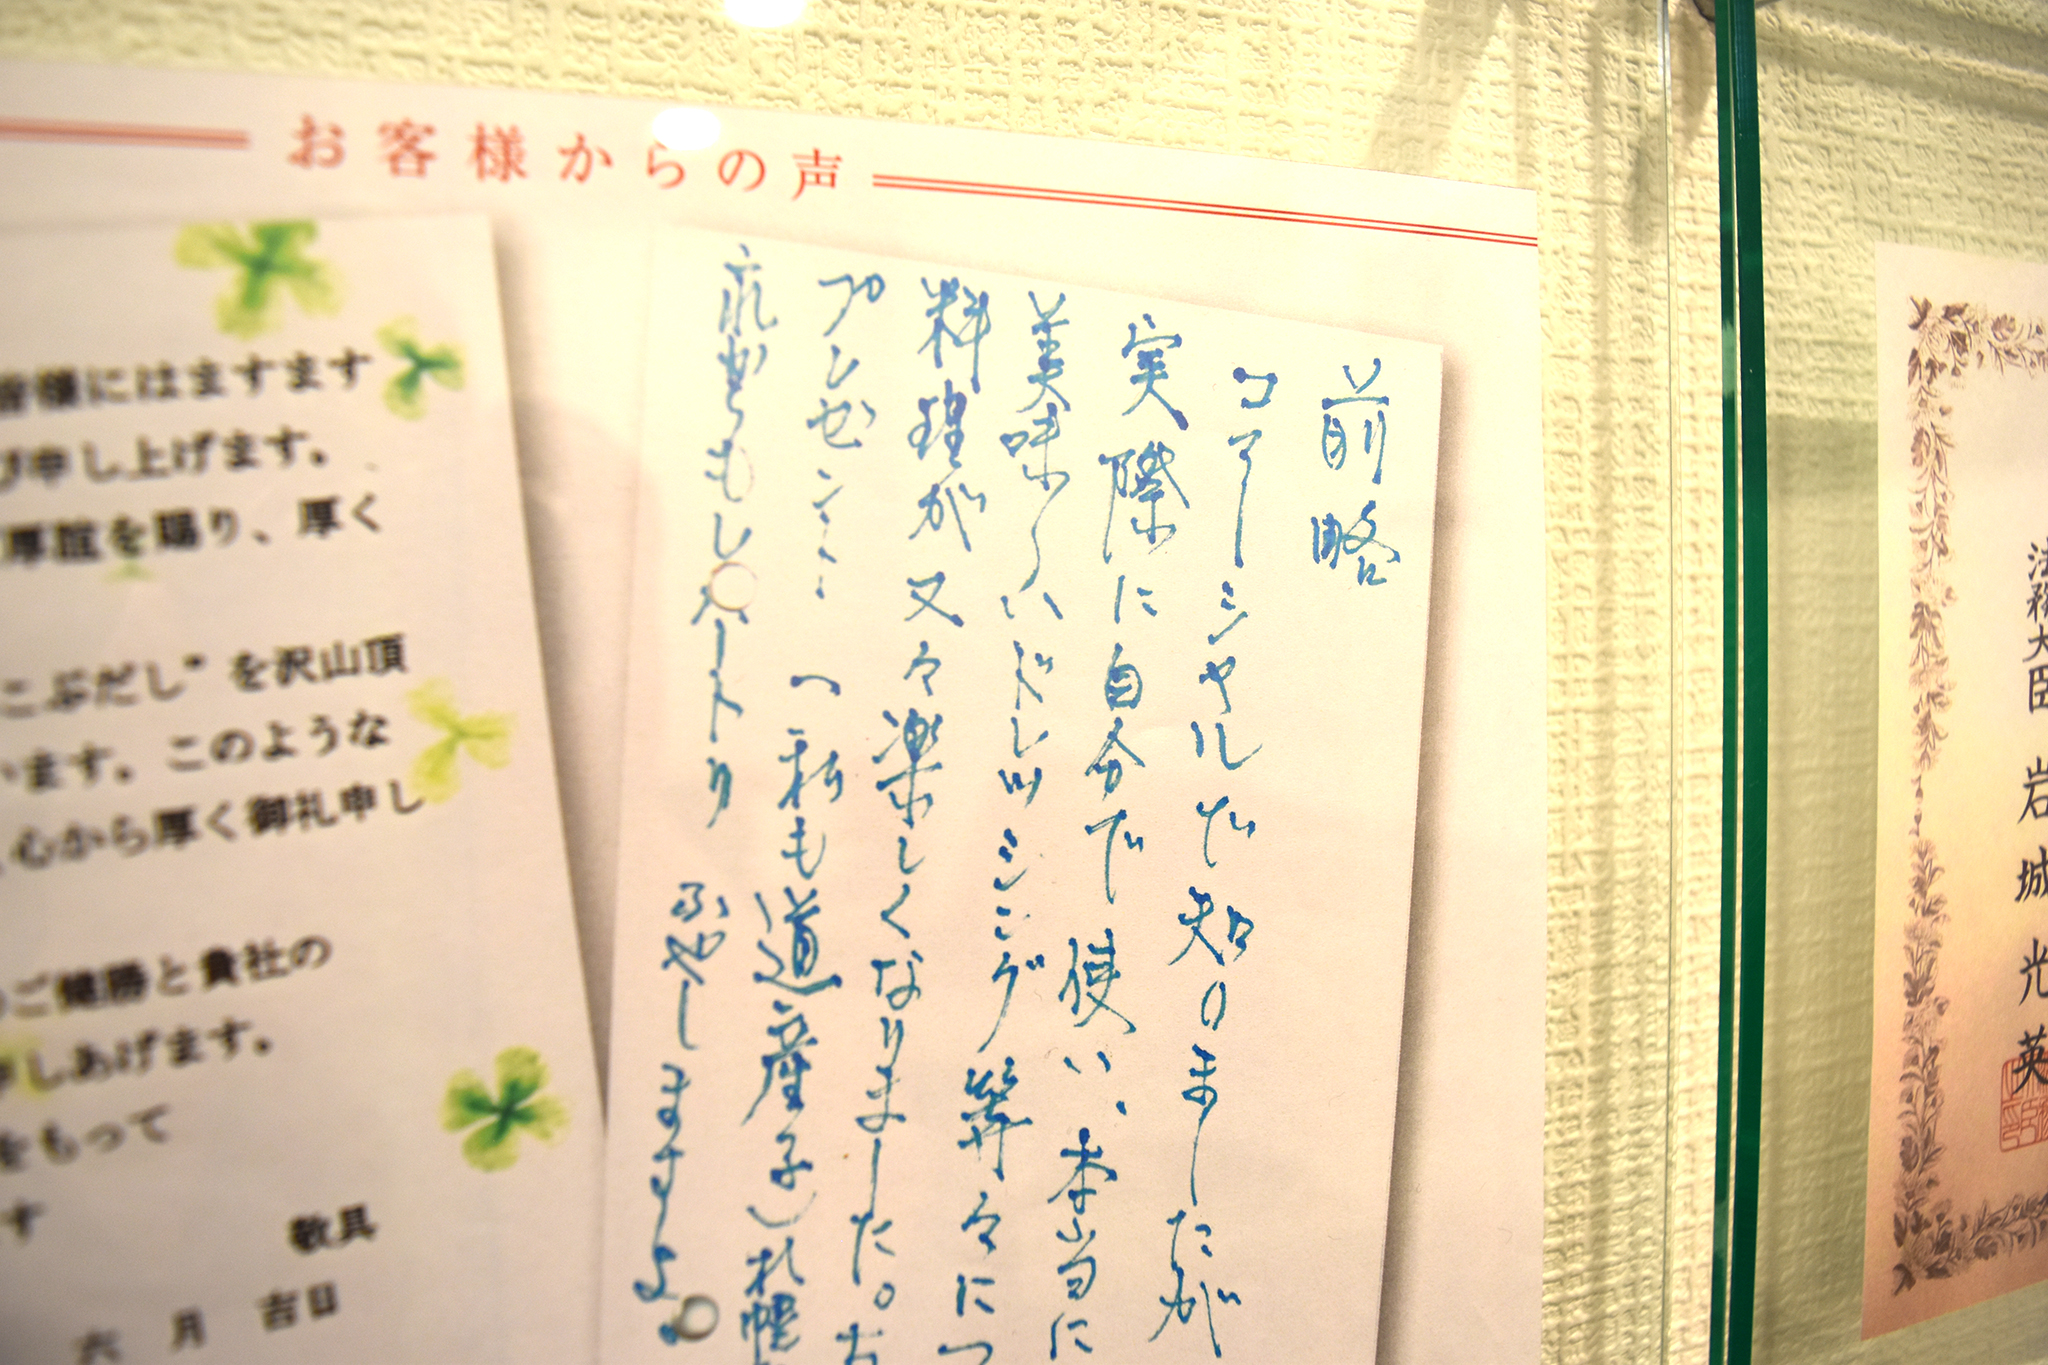 お客様からの声
前略
コマーシャルだ知りましたが
実際に自分で使い、本当に
美味〳〵ドレッシング等々につ
料理が又々楽しくなりました。お
プレゼント
(私も道産子)札幌
もしハートり
ふやしますよ。
皆様にはますます
び申し上げます。
厚誼を賜り、厚く
こぶだし"を沢山頂
います。このような
、心から厚く御礼申し
ご健勝と貴社の
申しあげます。
をもって
す
敬具
六月吉日
法務大臣 岩城光英